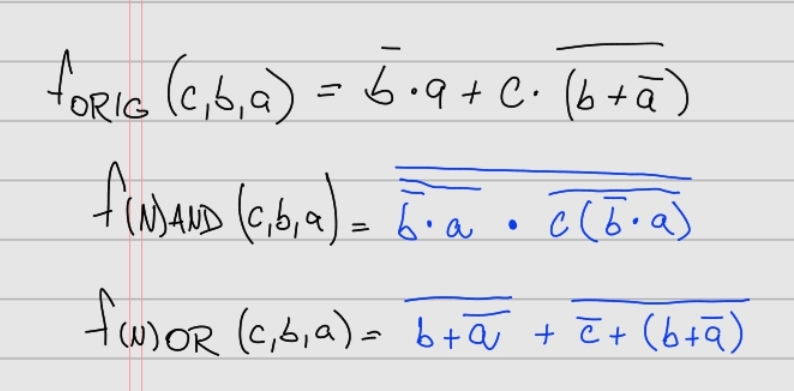 f_ORIG (c,b,a) = b̅·a + c·\overline{(b+a̅)}
f_(N)AND (c,b,a) = \overline{\overline{b̅·a} · \overline{c(b̅·a)}}
f_(N)OR (c,b,a) = \overline{b+a̅} + \overline{c̅+(b+a̅)}